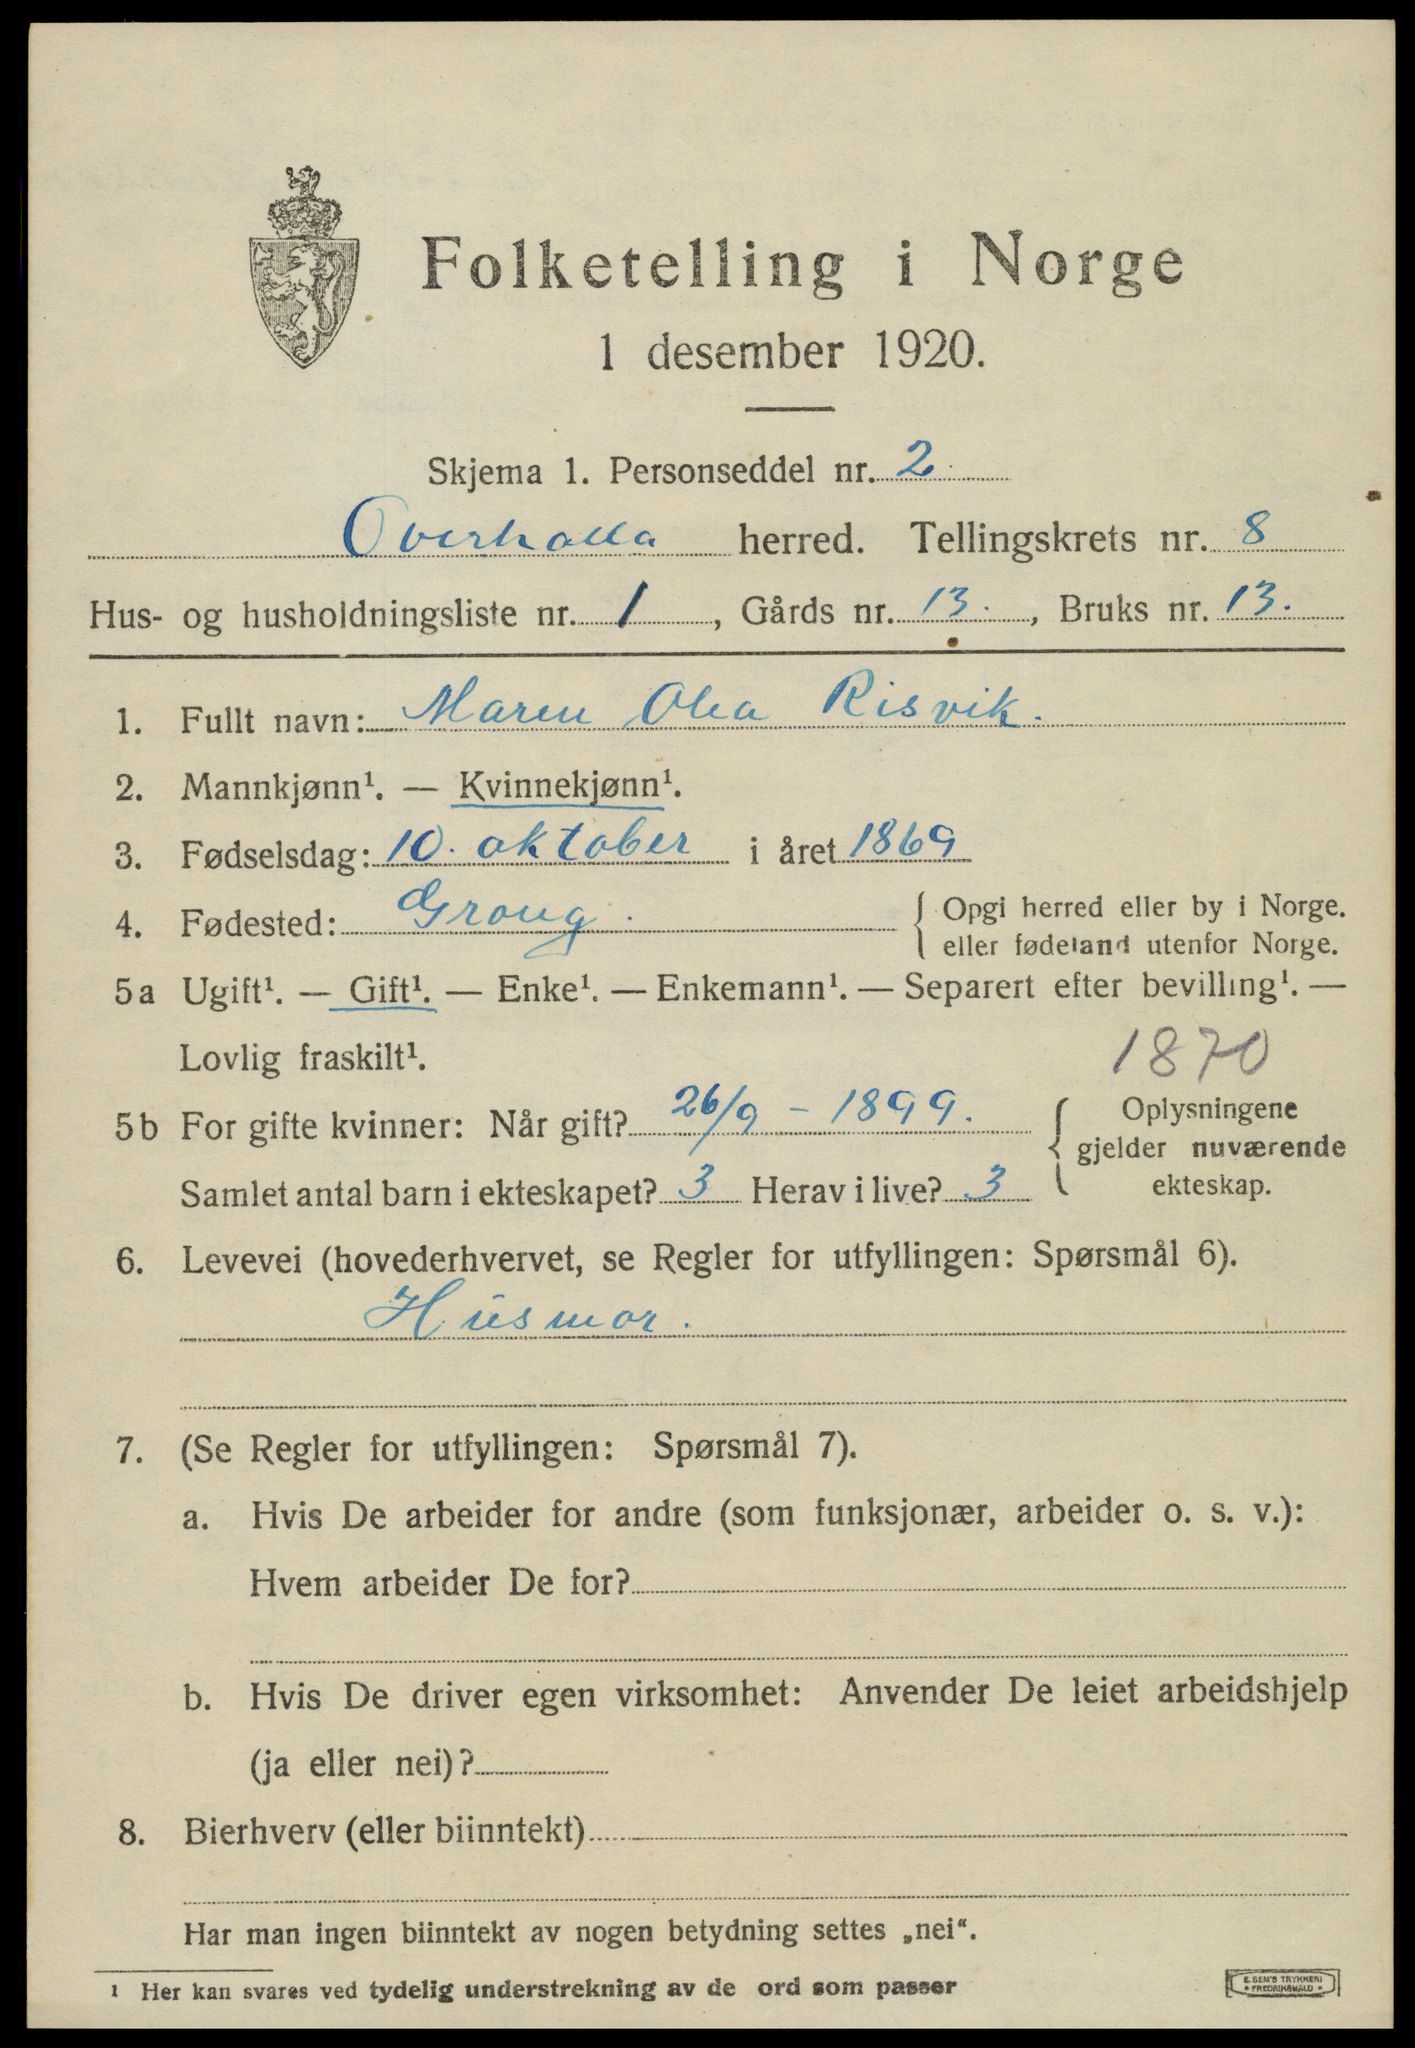 Folketelling i Norge
1 desember 1920.
Skjema 1. Personseddel nr. 2.
Overhalla herred. Tellingskrets nr. 8
Hus- og husholdningsliste nr. 1, Gårds nr. 13., Bruks nr. 13.
1. Fullt navn: Maren Olea Risvik.
2. Mannkjønn¹. — Kvinnekjønn¹.
3. Fødselsdag: 10. oktober i året 1869
4. Fødested: Grong. { Opgi herred eller by i Norge.
eller fødeland utenfor Norge.
5a Ugift¹. — Gift¹. — Enke¹. — Enkemann¹. — Separert efter bevilling¹. —
Lovlig fraskilt¹.
1870
5b For gifte kvinner: Når gift? 26/9 - 1899.
Samlet antal barn i ekteskapet? 3 Herav i live? 3
{ Oplysningene
gjelder nuværende
ekteskap.
6. Levevei (hovederhvervet, se Regler for utfyllingen: Spørsmål 6).
Husmor.
7. (Se Regler for utfyllingen: Spørsmål 7).
a. Hvis De arbeider for andre (som funksjonær, arbeider o. s. v.):
Hvem arbeider De for?
b. Hvis De driver egen virksomhet: Anvender De leiet arbeidshjelp
(ja eller nei)?
8. Bierhverv (eller biinntekt)
Har man ingen biinntekt av nogen betydning settes „nei“.
¹ Her kan svares ved tydelig understrekning av de ord som passer
E. SEM'S TRYKKERI
• FREDRIKSHALD •